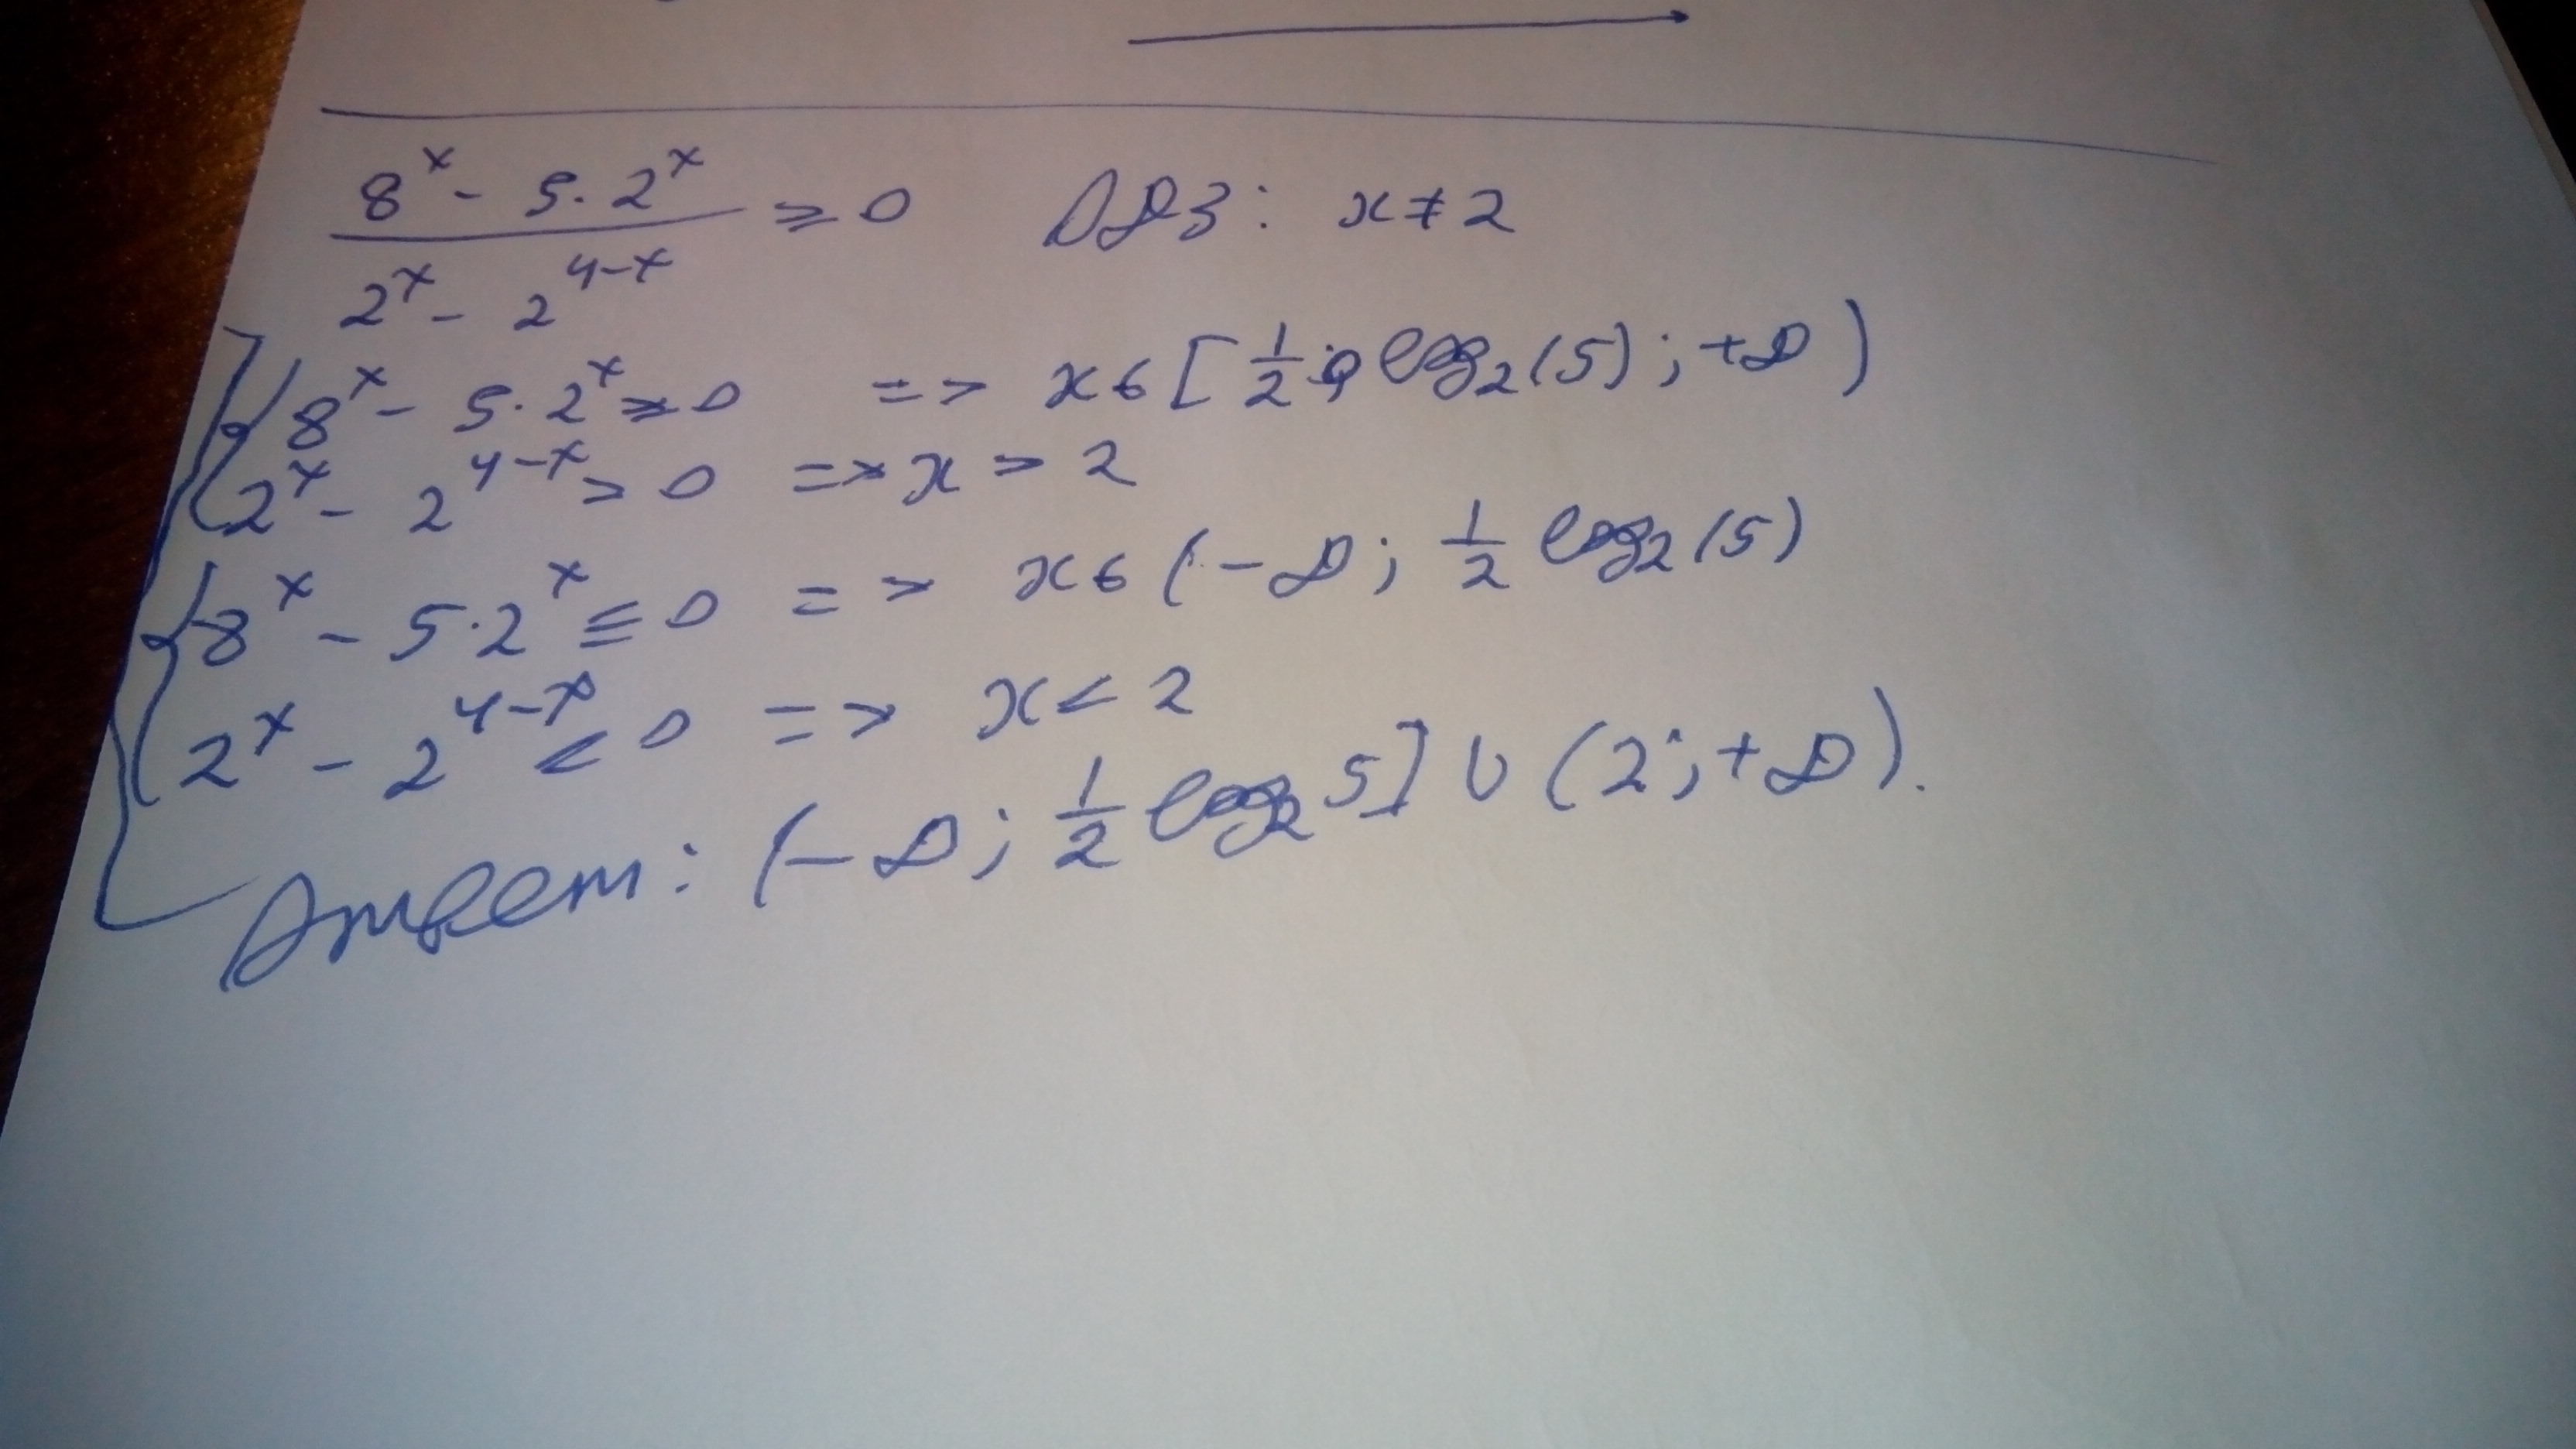 (8^x - 5·2^x)/(2^x - 2^(4-x)) ≥ 0 ОДЗ: x ≠ 2
8^x - 5·2^x ≥ 0 => x ∈ [1/2 log₂(5); +∞)
2^x - 2^(4-x) > 0 => x > 2
8^x - 5·2^x ≤ 0 => x ∈ (-∞; 1/2 log₂(5)
2^x - 2^(4-x) < 0 => x < 2
Ответ: (-∞; 1/2 log₂ 5] ∪ (2; +∞).